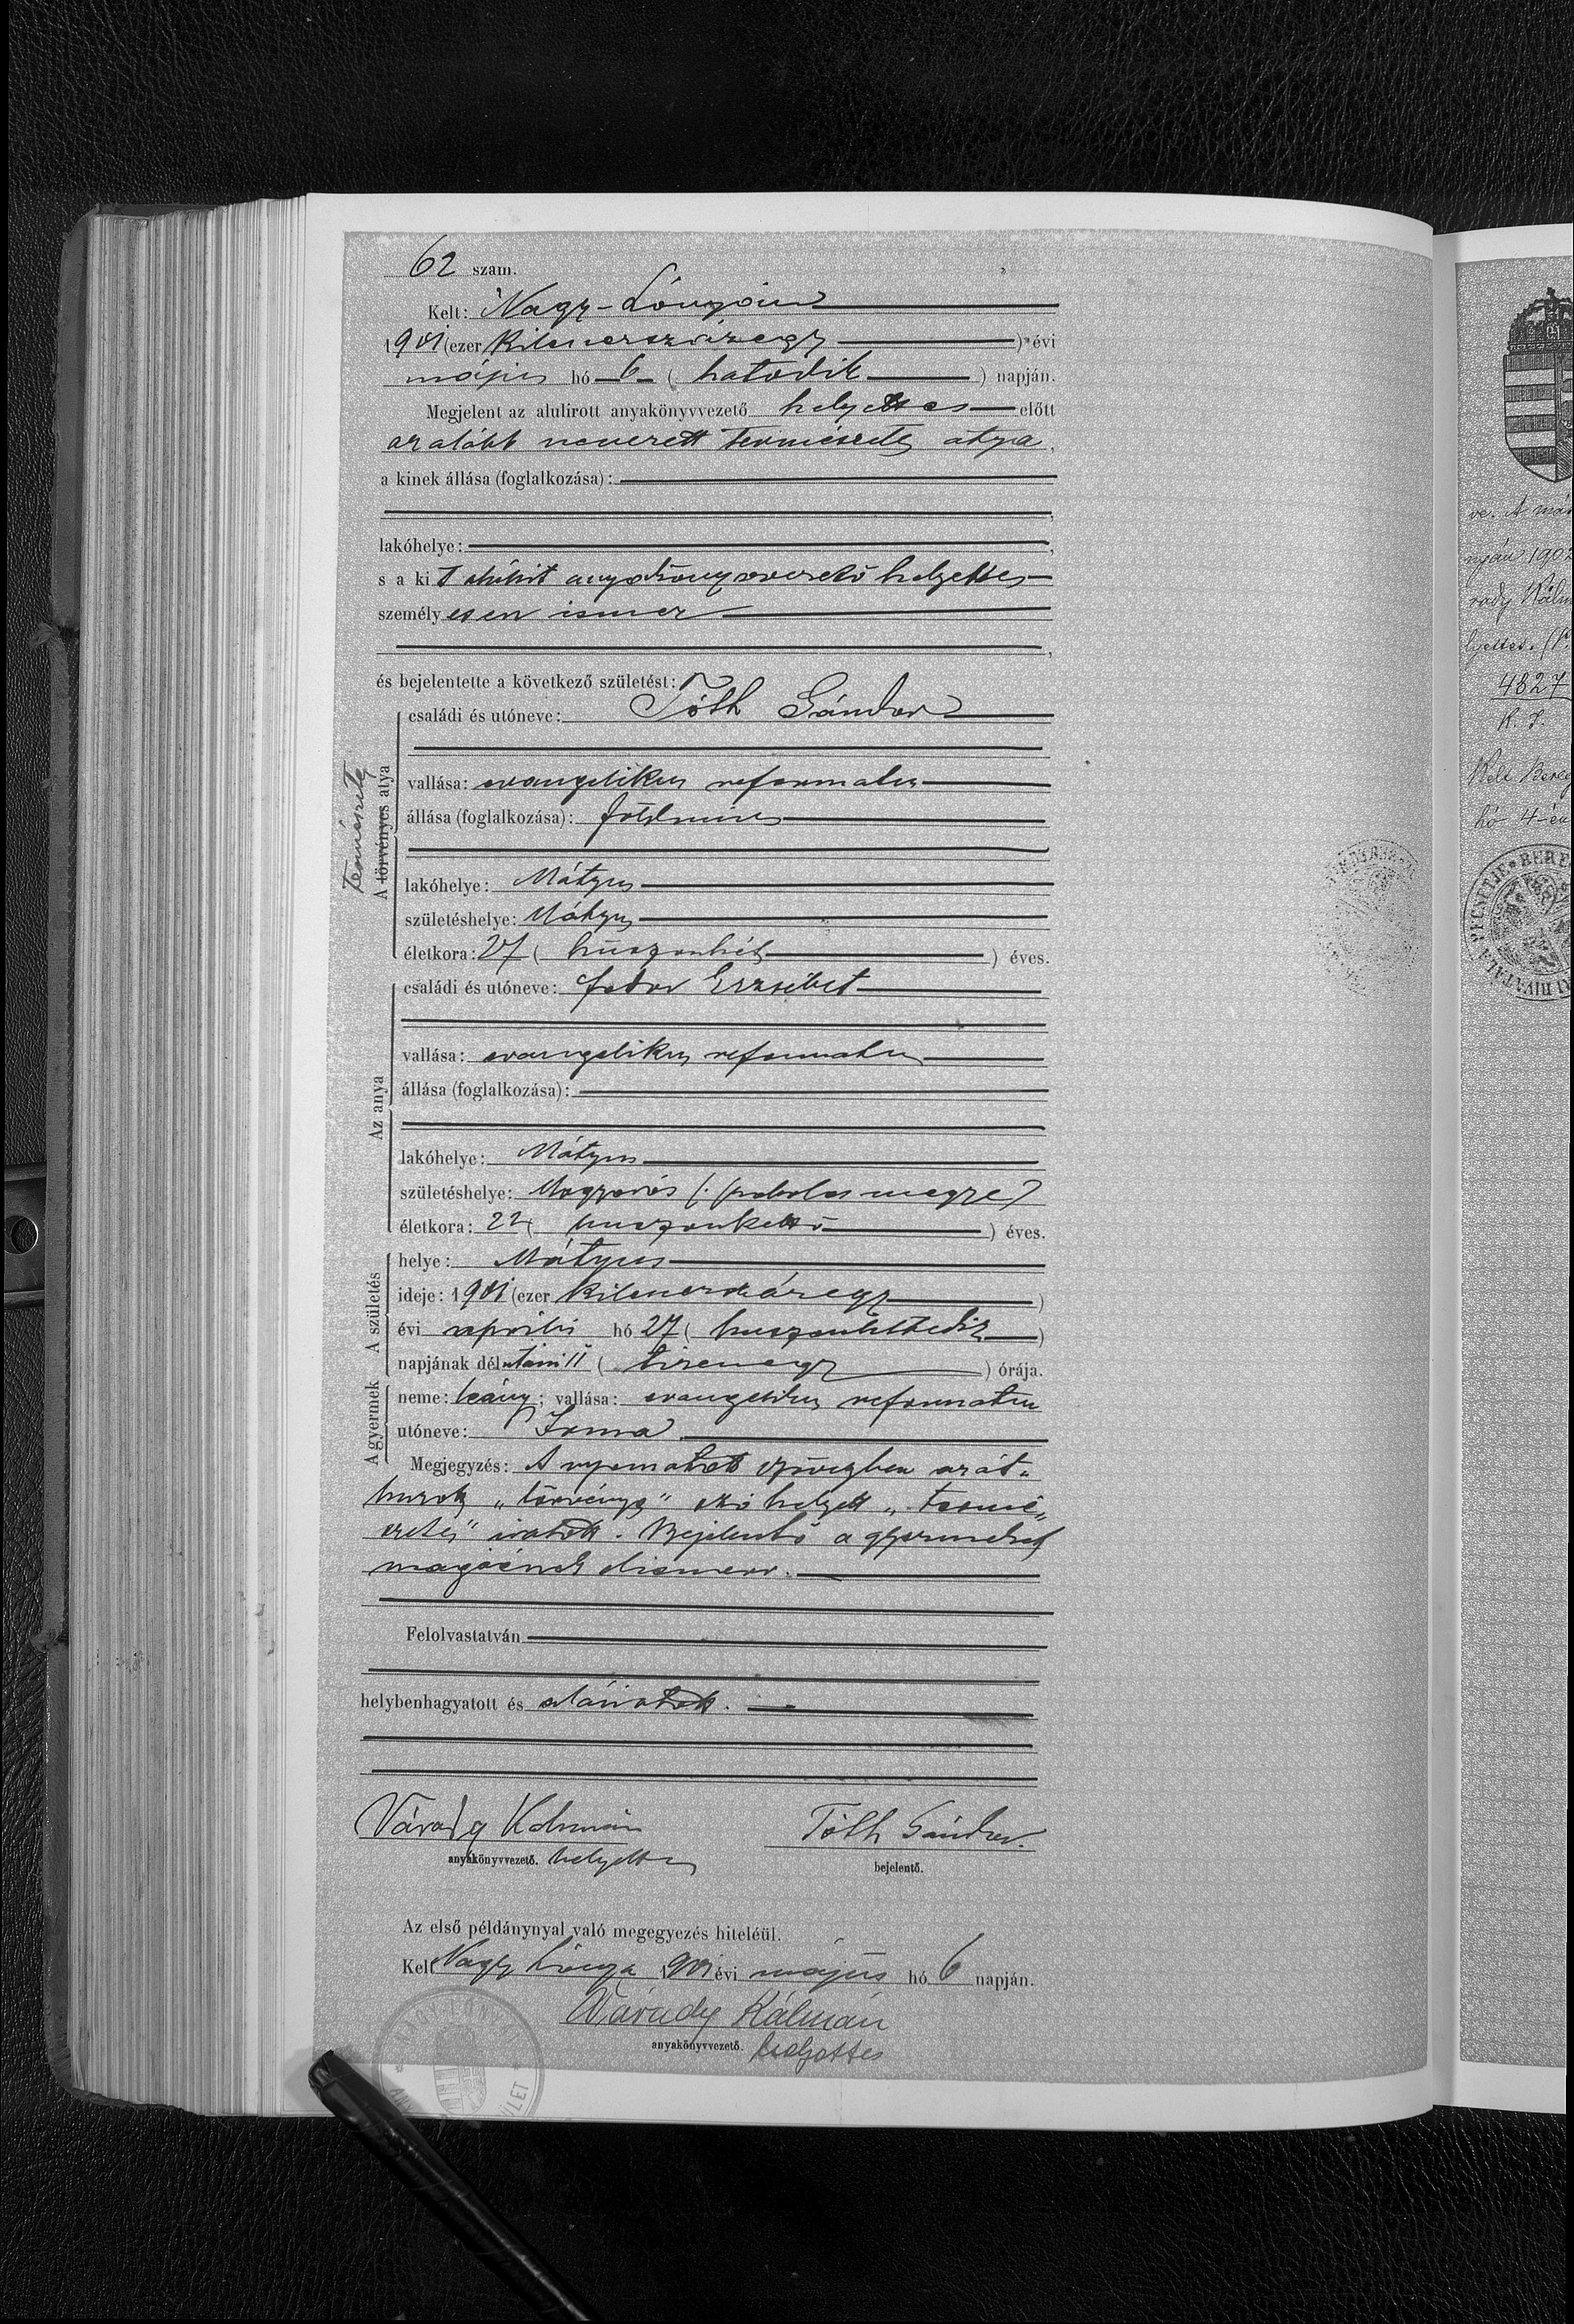 62 szám.
Kelt: Nagy-Lónyán
1901 (ezer kilenczszázegy) évi
május hó 6 ( hatodik ) napján.
Megjelent az alulírott anyakönyvvezető helyettes előtt
az alább nevezett természetes atya,
a kinek állása (foglalkozása):
lakóhelye:
s a kit alulirt anyakönyvvezető helyettes
személyesen ismer
és bejelentette a következő születést:
természetes
A törvényes atya
családi és utóneve: Tóth Sándor
vallása: evangelikus reformatus
állása (foglalkozása): földmíves
lakóhelye: Mátyus
születéshelye: Mátyus
életkora: 27 ( huszonhét ) éves.
Az anya
családi és utóneve: Fodor Erzsébet
vallása: evangelikus reformatus
állása (foglalkozása):
lakóhelye: Mátyus
születéshelye: Magyarós (: megye)
életkora: 22 ( huszonkettő ) éves.
A születés
helye: Mátyus
ideje: 1901 (ezer kilenczszázegy )
évi április hó 27 ( huszonhetedik )
napjának délutáni 11 ( tizenegy ) órája.
A gyermek
neme: leány; vallása: evangelikus reformatus
utóneve: Irma
Megjegyzés: A nyomatott szövegben az át-
huzott „törvényes" szó helyett „termé-
szetes" iratott. Bejelentő a gyermeket
magáénak elismeri.
Felolvastatván
helybenhagyatott és aláiratott.
Várady Kálmán
anyakönyvvezető. helyettes
Tóth Sándor.
bejelentő.
Az első példánynyal való megegyezés hiteléül.
Kelt Nagy Lónya 1901 évi május hó 6 napján.
Várady Kálmán
anyakönyvvezető. helyettes
NAGY-LÓNYA
4827
hó 4-én